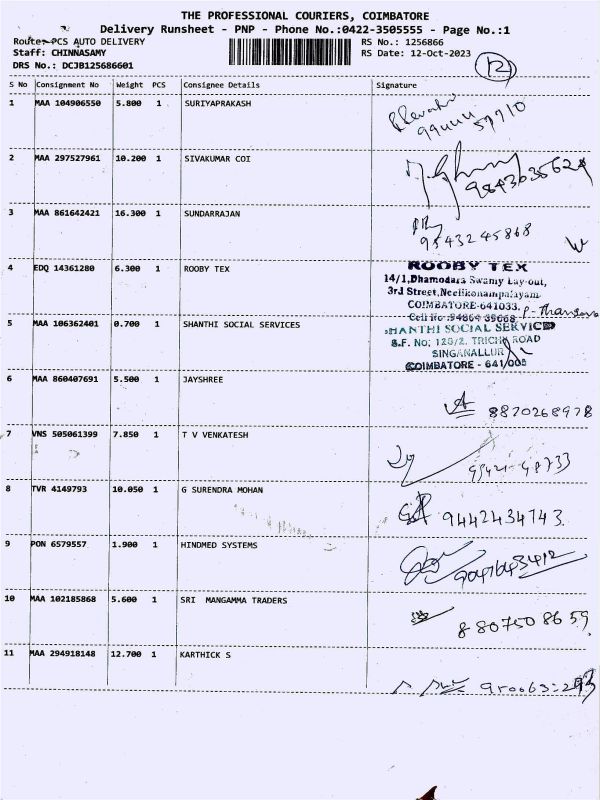 THE PROFESSIONAL COURIERS, COIMBATORE
Delivery Runsheet - PNP - Phone No.:0422-3505555 - Page No.:1
Route:-PCS AUTO DELIVERY RS No.: 1256866
Staff: CHINNASAMY RS Date: 12-Oct-2023
DRS No.: DCJB125686601 12
S No Consignment No Weight PCS Consignee Details Signature
1 MAA 104906550 5.800 1 SURIYAPRAKASH
99444 57710
2 MAA 297527961 10.200 1 SIVAKUMAR COI
9843635624
3 MAA 861642421 16.300 1 SUNDARRAJAN
9543245868
4 EDQ 14361280 6.300 1 ROOBY TEX
ROOBY TEX
14/1,Dhamodara Swamy Lay-out,
3rd Street,Neelikonampalayam
COIMBATORE-641033.
Cell No :94864 39668
5 MAA 106362401 0.700 1 SHANTHI SOCIAL SERVICES
SHANTHI SOCIAL SERVICE
S.F. No: 128/2. TRICHY ROAD
SINGANALLUR
COIMBATORE - 641005
6 MAA 860407691 5.500 1 JAYSHREE
8870268978
7 VNS 505061399 7.850 1 T V VENKATESH
8 TVR 4149793 10.050 1 G SURENDRA MOHAN
9442434743
9 PON 6579557 1.900 1 HINDMED SYSTEMS
10 MAA 102185868 5.600 1 SRI MANGAMMA TRADERS
8807508659
11 MAA 294918148 12.700 1 KARTHICK S